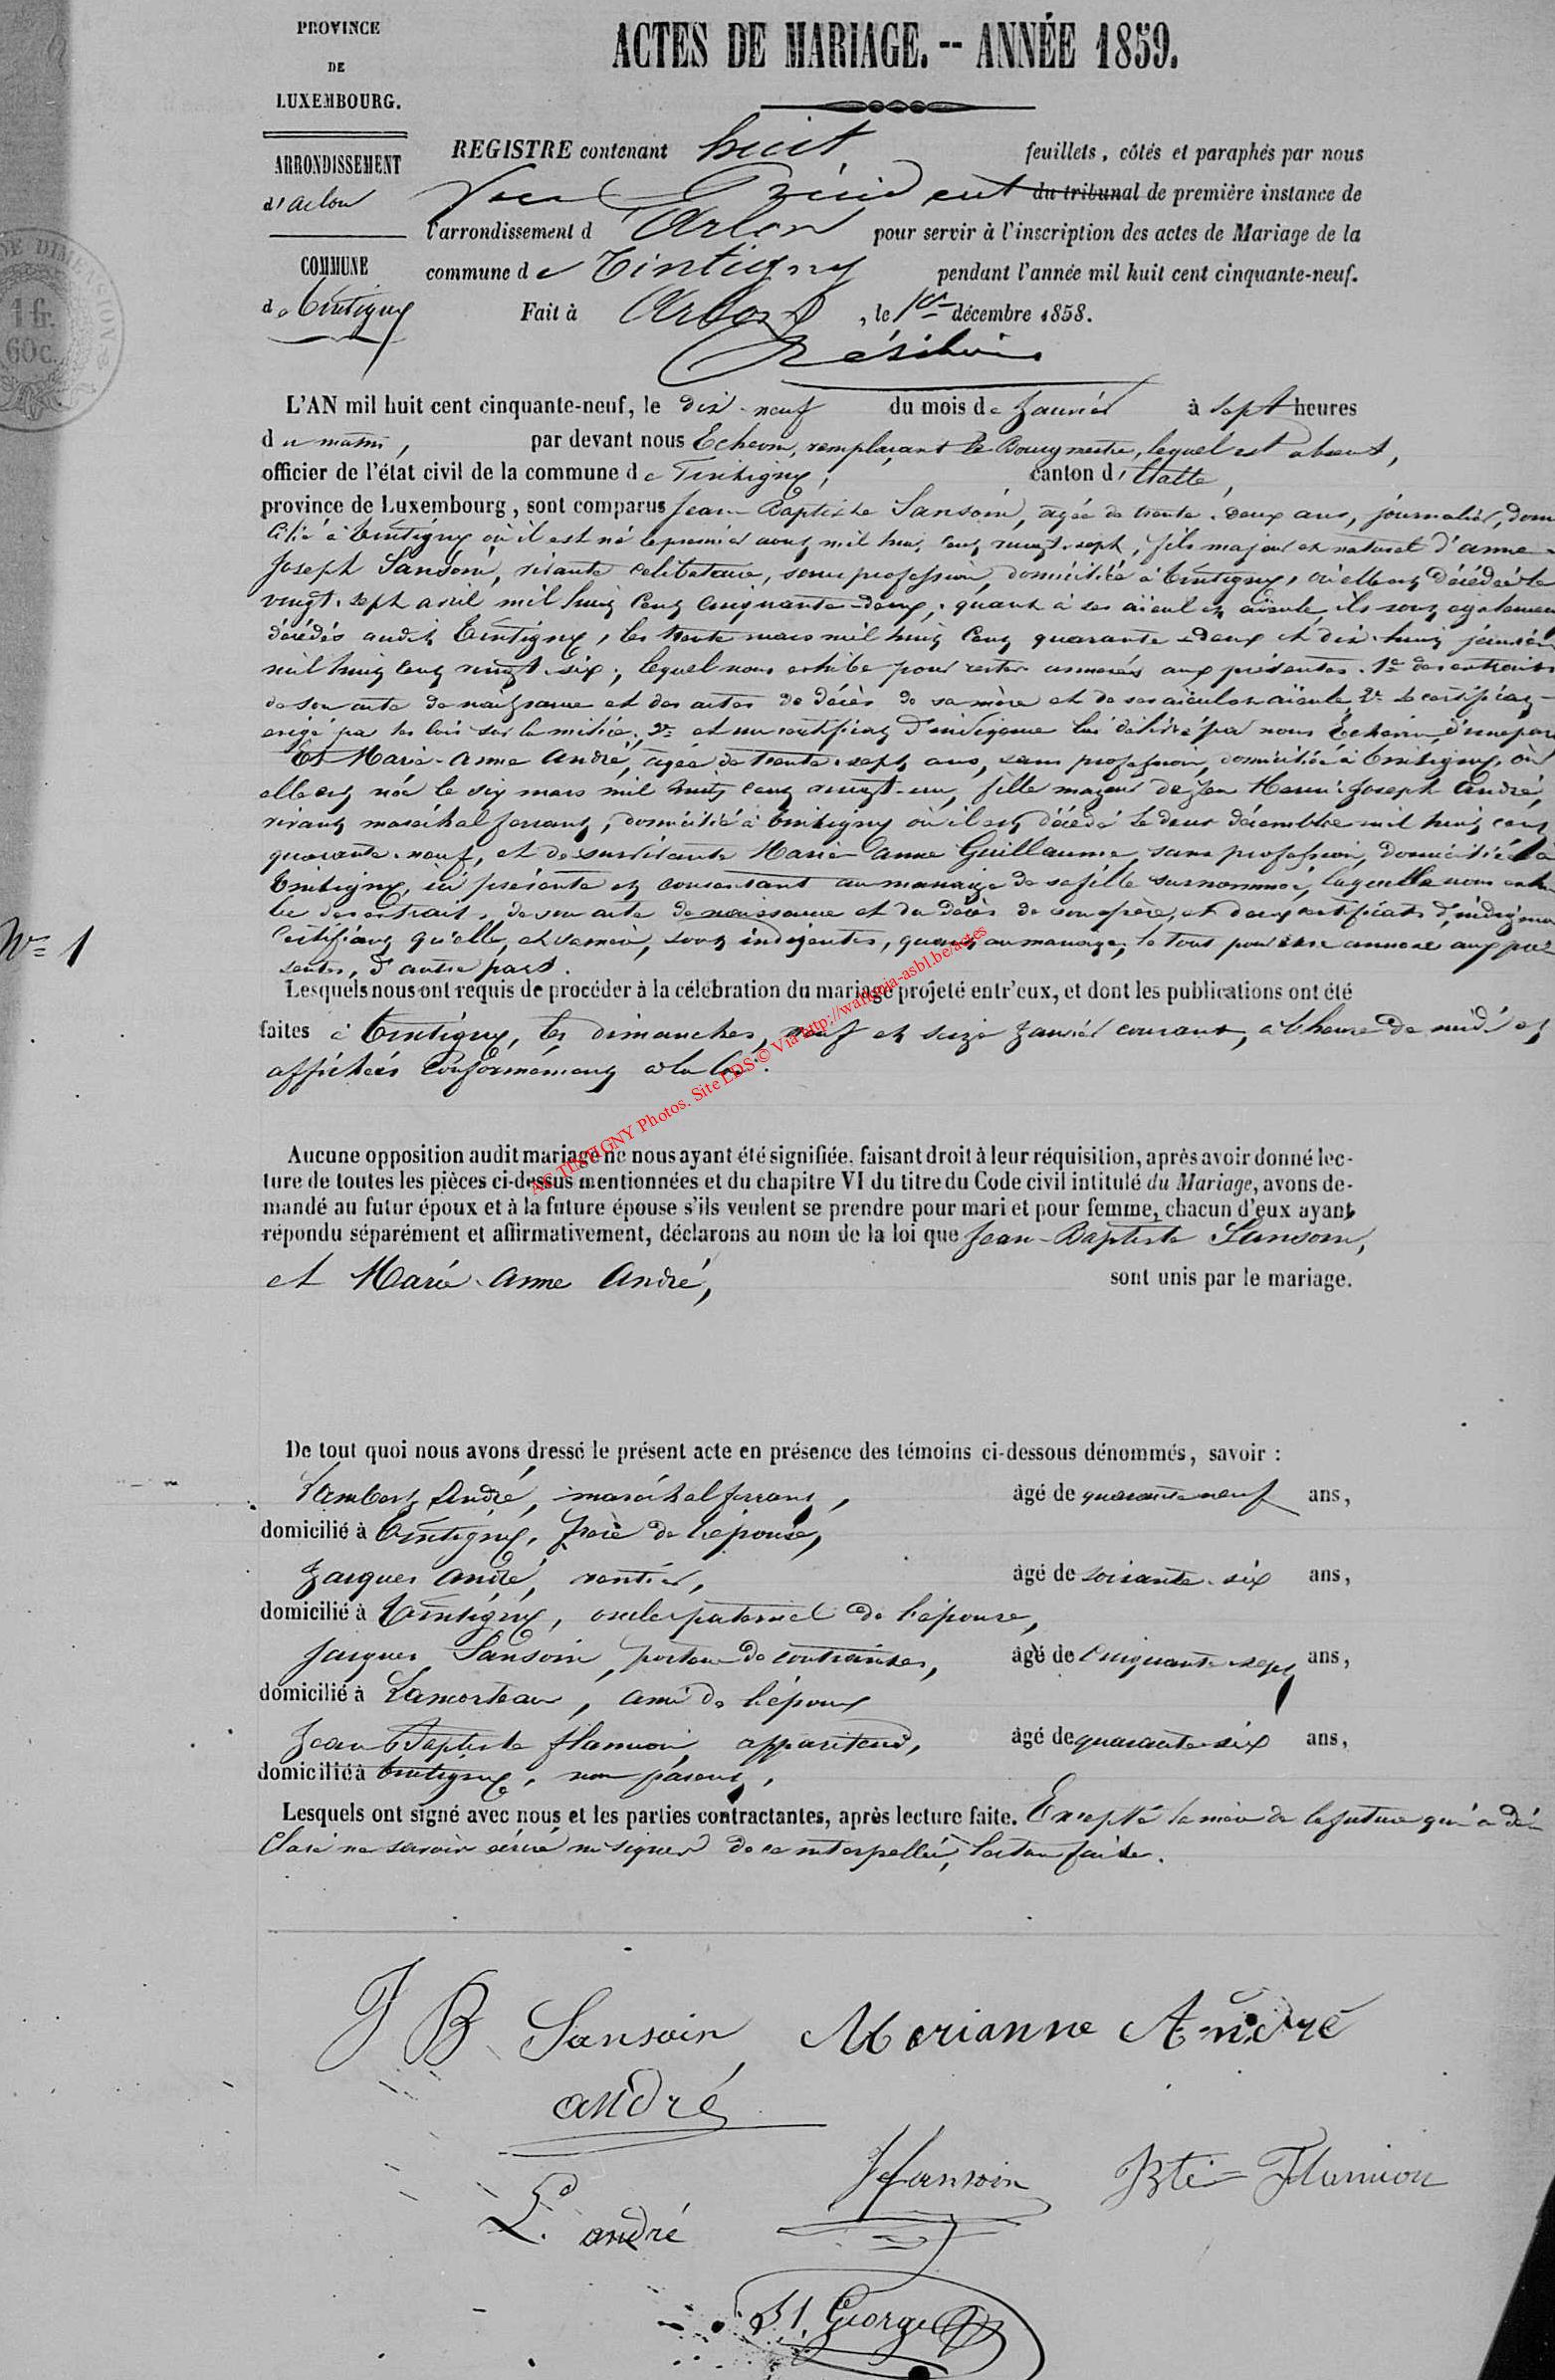 PROVINCE
DE
LUXEMBOURG.
ARRONDISSEMENT
d'Arlon
COMMUNE
de Tintigny
DE DIMENSION
1 fr.
60c.
ACTES DE MARIAGE. -- ANNÉE 1859.
REGISTRE contenant huit feuillets, côtés et paraphés par nous
Vice Président du tribunal de première instance de
l'arrondissement d'Arlon pour servir à l'inscription des actes de Mariage de la
commune de Tintigny pendant l'année mil huit cent cinquante-neuf.
Fait à Arlon, le 1er décembre 1858.
L'AN mil huit cent cinquante-neuf, le dix-neuf du mois de Janvier à sept heures
du matin, par devant nous Echevin, remplaçant le Bourgmestre, lequel est absent,
officier de l'état civil de la commune de Tintigny, canton d'Etalle,
province de Luxembourg, sont comparus Jean-Baptiste Sansoin, âgé de trente-deux ans, journalier, domi
cilié à Tintigny où il est né le premier août mil huit cent vingt-sept, fils majeur et naturel d'anne-
Joseph Sansoin, vivante celibataire, sans profession, domiciliée à Tintigny, où elle est décédée le
vingt-sept avril mil huit cent cinquante-deux; quant à ses aïeul et aïeule, ils sont également
décédés audit Tintigny, les trente mars mil huit cent quarante-deux et dix-huit janvier
mil huit cent vingt-six; lequel nous exhibe pour rester annexés aux présentes. 1° des extraits
de son acte de naissance et des actes de décès de sa mère et de ses aïeul et aïeule 2° le certificat
exigé par les lois sur la milice; 3° et un certificat d'indigence lui délivré par nous Echevin, d'une part
Et Marie-Anne André, âgée de trente-sept ans, sans profession, domiciliée à Tintigny, où
elle est née le six mars mil huit cent vingt-un, fille majeure de feu Henri-Joseph André,
vivant maréchal ferrant, domicilié à Tintigny où il est décédé le deux décembre mil huit cent
quarante-neuf, et de survivante Marie-Anne Guillaume, sans profession, domiciliée à
Tintigny, ici présente et consentant au mariage de sa fille surnommée, laquelle nous exhi
be des extraits de son acte de naissance et du décès de son père, et deux certificats d'indigence
certifiant qu'elle, et sa mère, sont indigentes, quant au mariage; le tout pour être annexé aux pré
sentes, d'autre part.
Nº 1
Lesquels nous ont requis de procéder à la célébration du mariage projeté entr'eux, et dont les publications ont été
faites à Tintigny, les dimanches, neuf et seize Janvier courant, à l'heure de midi et
affichées conformément à la loi.
AC TINTIGNY Photos. Site LDS © Via http://wallonia-asbl.be/actes
Aucune opposition audit mariage ne nous ayant été signifiée, faisant droit à leur réquisition, après avoir donné lec-
ture de toutes les pièces ci-dessus mentionnées et du chapitre VI du titre du Code civil intitulé du Mariage, avons de-
mandé au futur époux et à la future épouse s'ils veulent se prendre pour mari et pour femme, chacun d'eux ayant
répondu séparément et affirmativement, déclarons au nom de la loi que Jean-Baptiste Sansoin,
et Marie-Anne André, sont unis par le mariage.
De tout quoi nous avons dressé le présent acte en présence des témoins ci-dessous dénommés, savoir :
Lambert André, maréchal ferrant, âgé de quarante neuf ans,
domicilié à Tintigny, frère de l'épouse,
Jacques André, rentier, âgé de soixante-six ans,
domicilié à Tintigny, oncle paternel de l'épouse,
Jacques Sansoin, porteur de contraintes, âgé de cinquante-sept ans,
domicilié à Lamorteau, ami de l'époux
Jean Baptiste Flamion, appariteur, âgé de quarante-six ans,
domicilié à Tintigny, non parent,
Lesquels ont signé avec nous et les parties contractantes, après lecture faite. Excepté la mère de la future qui a dé-
claré ne savoir écrire ni signer de ce interpellée, lecture faite.
J B Sansoin Marianne André
andré
JSansoin Bte Flamion
L. andré
George